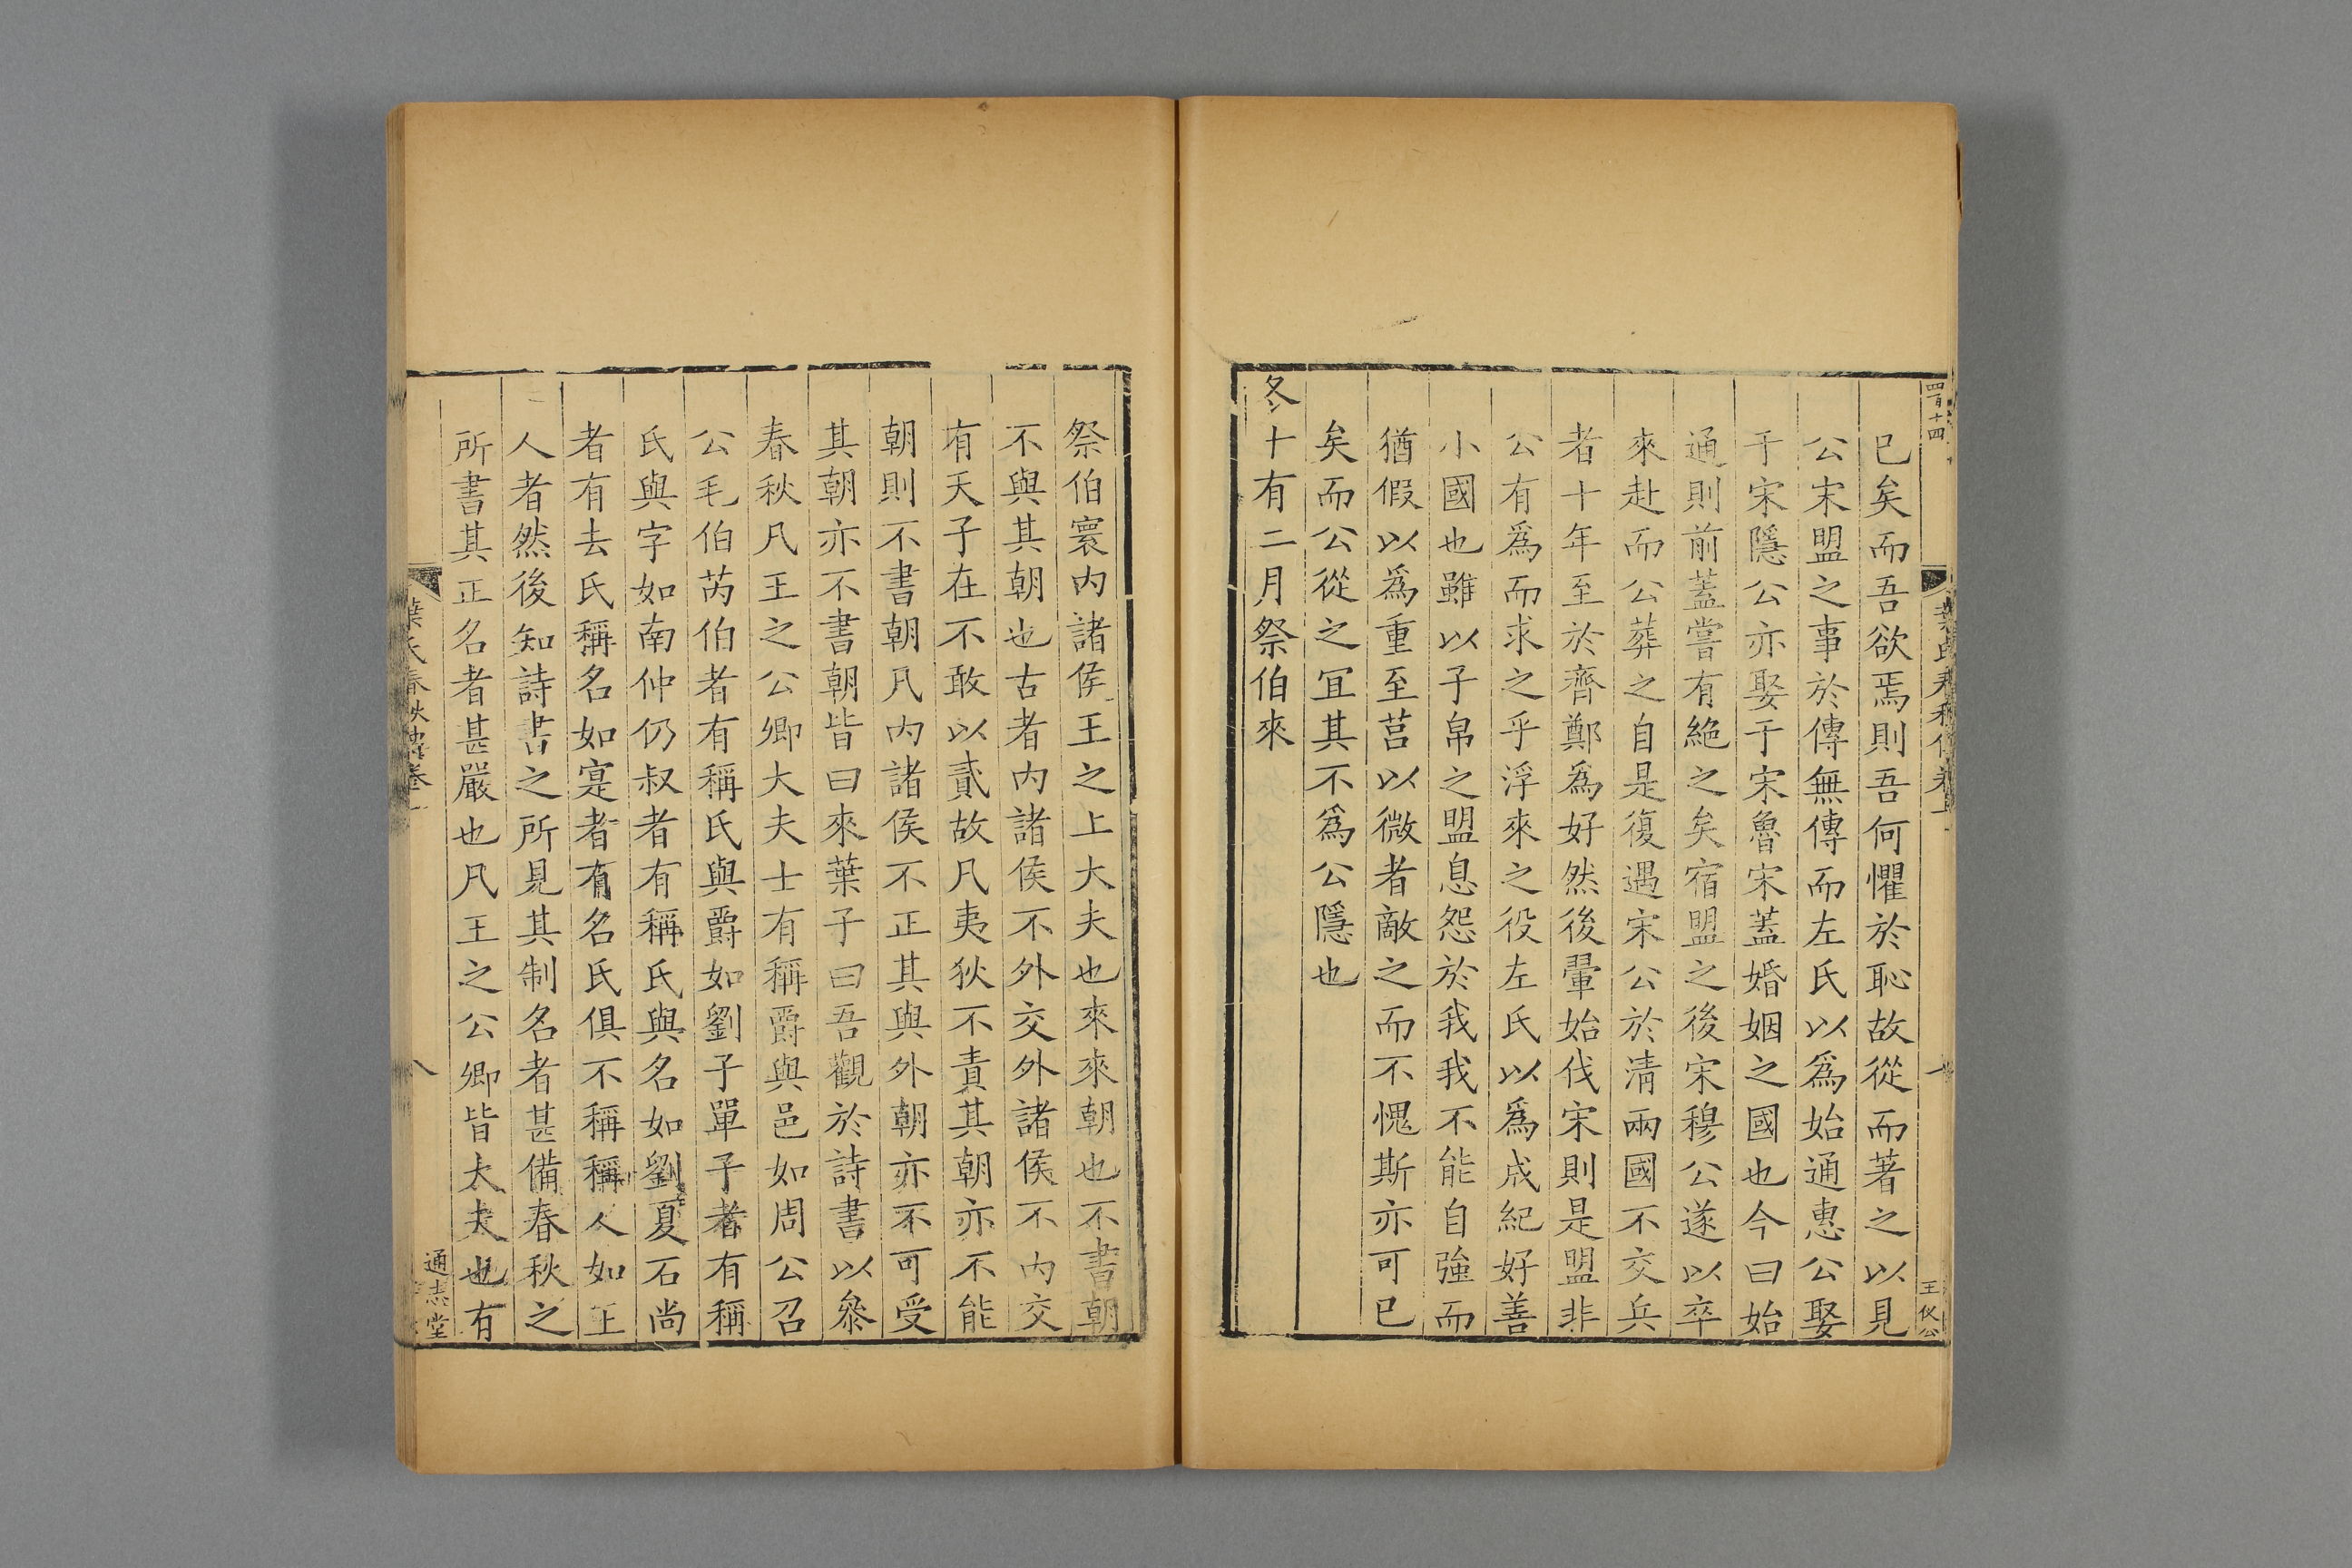 四百十四
葉氏春秋傳卷一
王攸公
已矣而吾欲焉則吾何懼於恥故從而著之以見
公宋盟之事於傳無傳而左氏以爲始通惠公娶
于宋隱公亦娶于宋魯宋蓋婚姻之國也今曰始
通則前蓋嘗有絶之矣宿盟之後宋穆公遂以卒
來赴而公葬之自是復遇宋公於清兩國不交兵
者十年至於齊鄭爲好然後翬始伐宋則是盟非
公有爲而求之乎浮來之役左氏以爲成紀好善
小國也雖以子帛之盟息怨於我我不能自強而
猶假以爲重至莒以微者敵之而不愧斯亦可已
矣而公從之宜其不爲公隱也
冬十有二月祭伯來
祭伯寰内諸侯王之上大夫也來來朝也不書朝
不與其朝也古者内諸侯不外交外諸侯不内交
有天子在不敢以貳故凡夷狄不責其朝亦不能
朝則不書朝凡内諸侯不正其與外朝亦不可受
其朝亦不書朝皆曰來葉子曰吾觀於詩書以叅
春秋凡王之公卿大夫士有稱爵與邑如周公召
公毛伯芮伯者有稱氏與爵如劉子單子者有稱
氏與字如南仲仍叔者有稱氏與名如劉夏石尚
者有去氏稱名如寔者有名氏俱不稱稱人如王
人者然後知詩書之所見其制名者甚備春秋之
所書其正名者甚嚴也凡王之公卿皆大夫也有
葉氏春秋傳卷一
八
通志堂